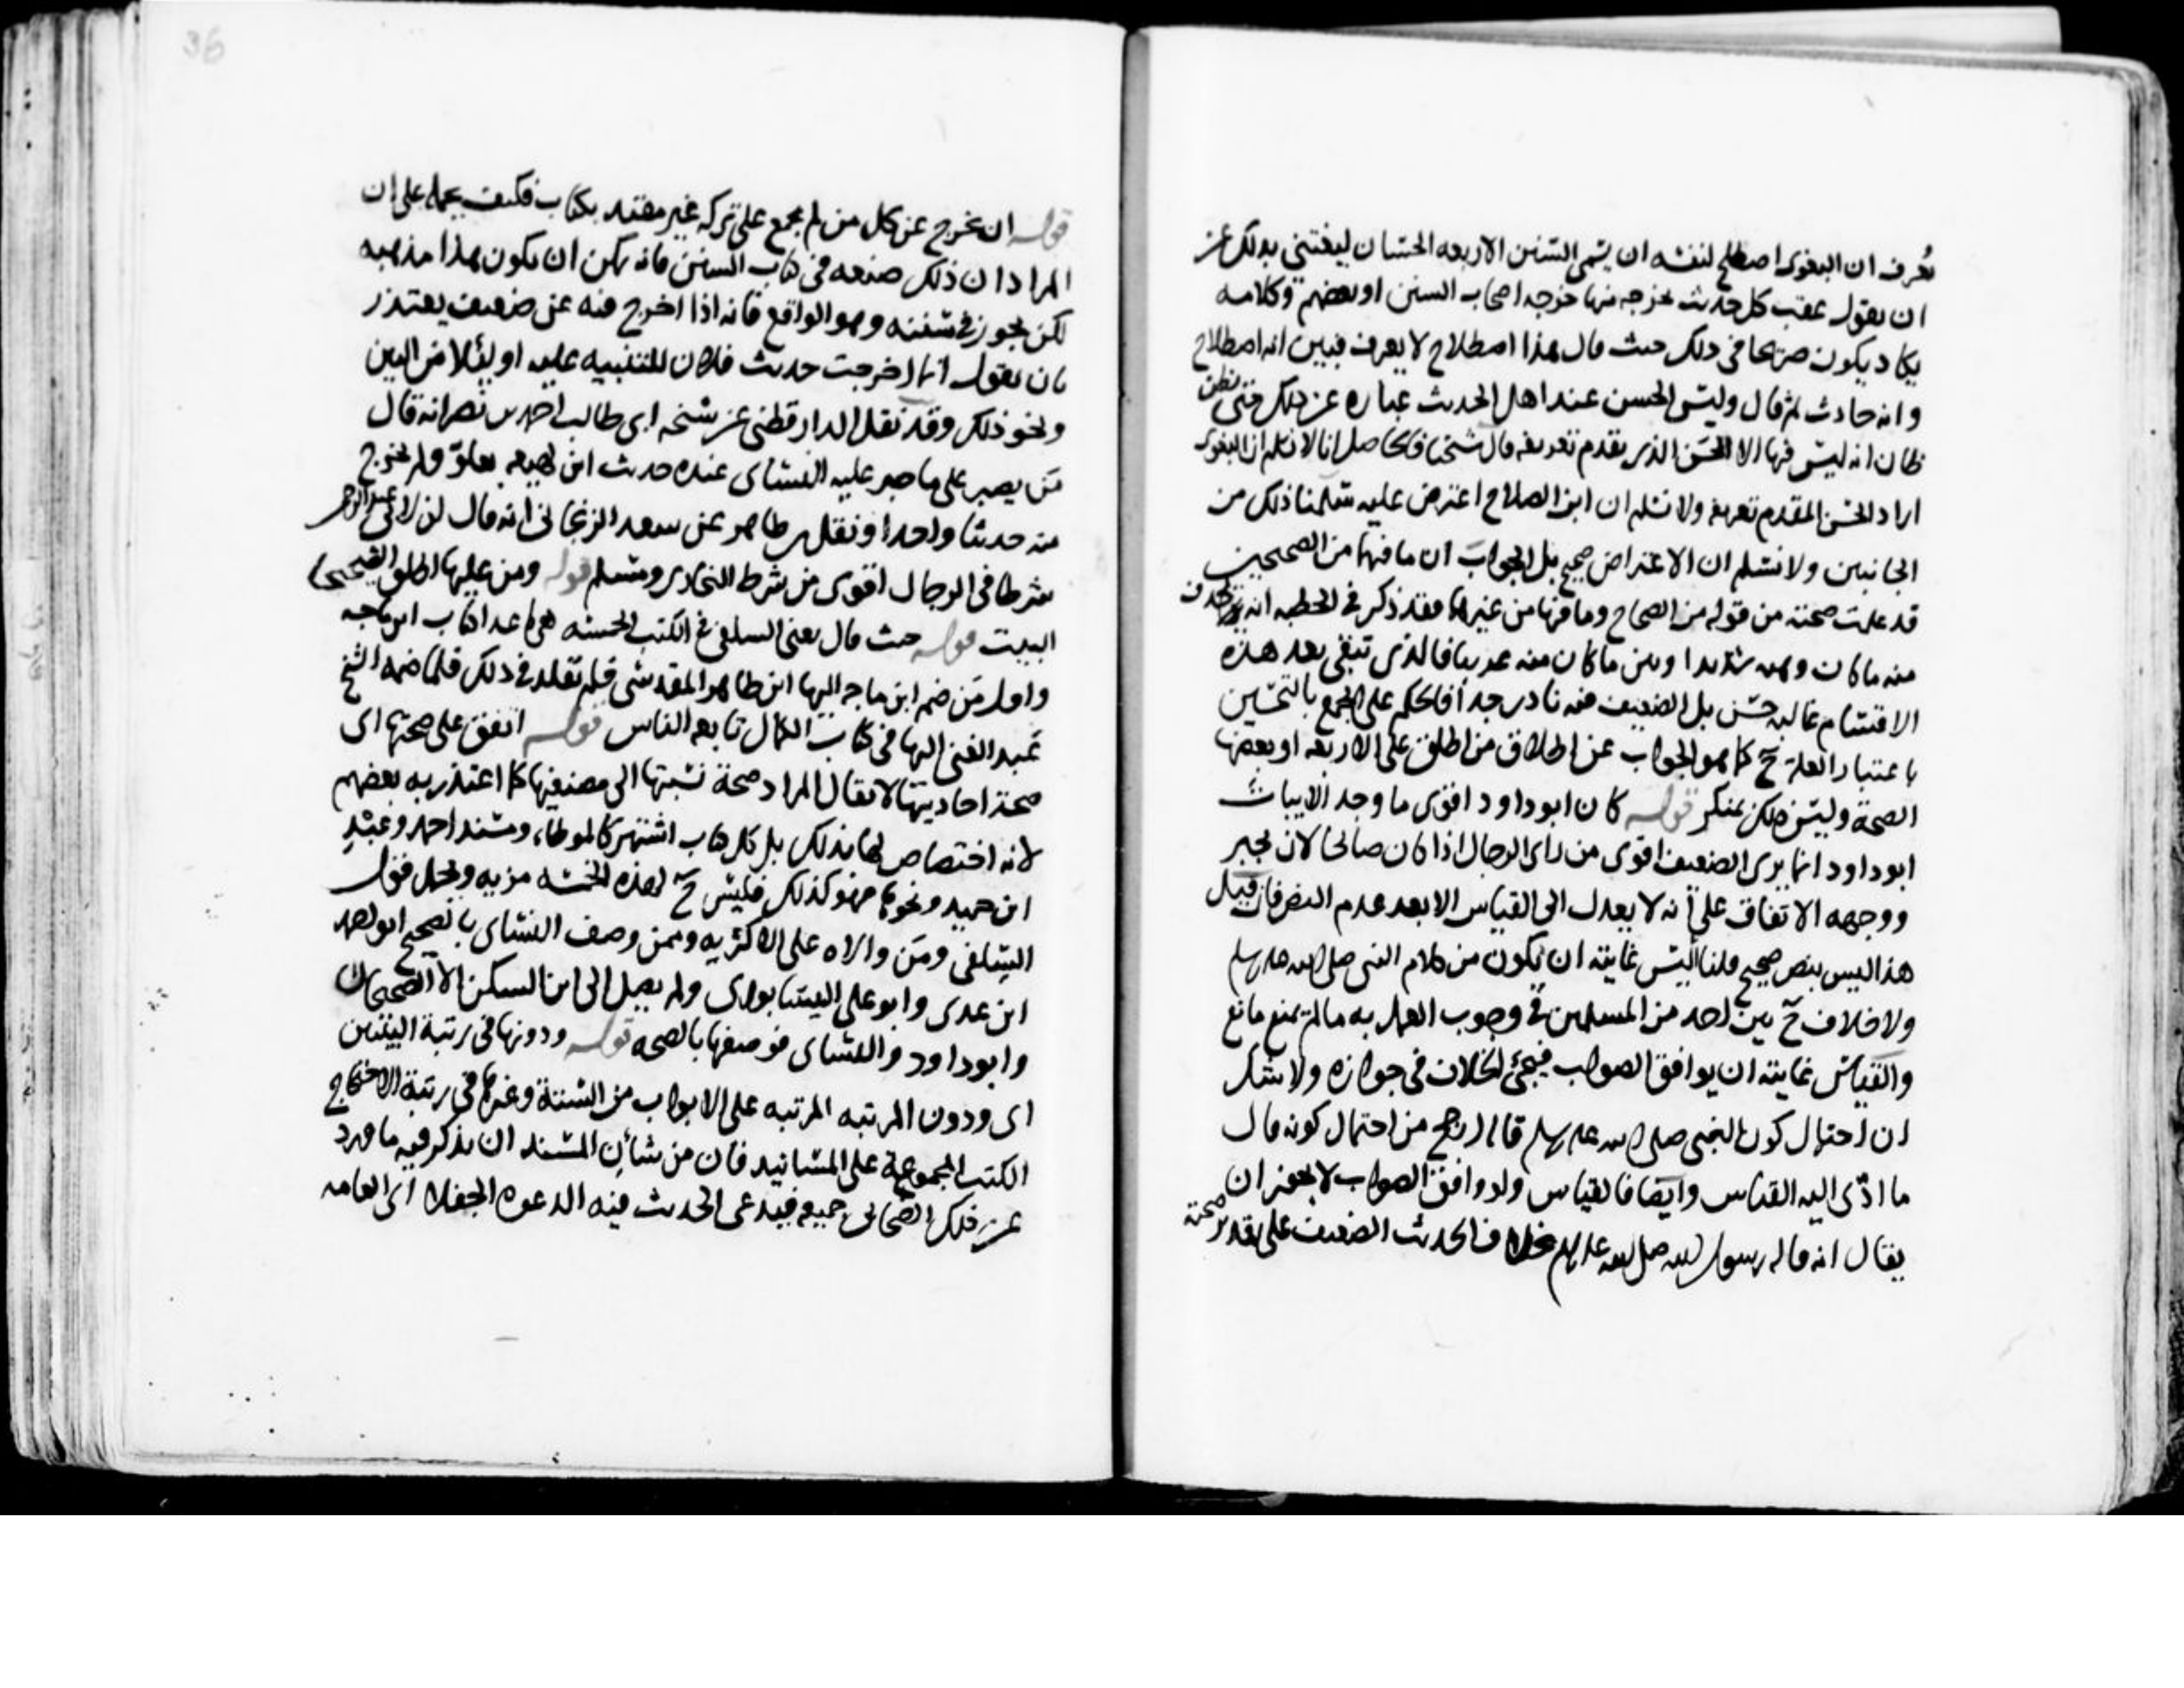 نعرف ان البغوى اصطلح لنفسه ان يسمى السنن الاربعه الحسان ليغتنى بذلك عن
ان يقول عقب كل حديث يخرجه منها خرجه اصحاب السنن او بعضهم وكلامه
يكاد يكون صريحا فى ذلك حيث قال هذا اصطلاح لا يعرف فبين انه اصطلاح
وانه حادث ثم قال وليس الحسن عند اهل الحديث عبارة عن ذلك حتى يظن
ظان انه ليس فيها الا الحسن الذى تقدم تعريفه قال شيخنا فالحاصل انا لا نسلم ان البغوى
اراد الحسن المقدم تعريفه ولا نسلم ان ابن الصلاح اعترض عليه سلمنا ذلك من
الجانبين ولا نسلم ان الاعتراض صحيح بل الجواب ان ما فيها من الصحيحين
قد علمت صحته من قوله من الصحاح وما فيها من غيرها فقد ذكر فى الخطبه انه
منه ما كان وهنه شديدا وبين ما كان منه غريبا فالذى تبقى بعد هذه
الاقسام غالبه حسن بل الضعيف منه نادر جدا فالحكم على الجمع بالتحسين
باعتبار الغلبة ح كما هو الجواب عن اطلاق من اطلق على الاربعه او بعضها
الصحة وليس ذلك بمنكر قوله كان ابو داود اقوى ما وجد الابيات
ابو داود انما يرى الضعيف اقوى من راى الرجال اذا كان صالحا لان يجبر
ووجهه الاتفاق على انه لا يعدل الى القياس الا بعد عدم النص فان قيل
هذا ليس بنص صحيح قلنا اليس غايته ان يكون من كلام النبى صلى الله عليه وسلم
ولا خلاف ح بين احد من المسلمين فى وجوب العمل به ما لم يمنع مانع
والقياس غايته ان يوافق الصواب فيجئ الخلاف فى جوازه ولا شك
ان احتمال كون النبى صلى الله عليه وسلم قاله ارجح من احتمال كونه قال
ما ادّى اليه القياس وايضا فالقياس ولو وافق الصواب لا يجوز ان
يقال انه قاله رسول الله صلى الله عليه وسلم بخلاف الحديث الضعيف على تقدير صحته
قوله ان يخرج عن كل من لم يجمع على تركه غير مقيد بكتاب فكيف يحمله على ان
المراد ان ذلك صنعه فى كتاب السنن فانه يمكن ان يكون هذا مذهبه
لكن يجوز فى سننه وهو الواقع فانه اذا اخرج فيه عن ضعيف يعتذر
بان يقول انما اخرجت حديث فلان للتنبيه عليه او لئلا من البين
ونحو ذلك وقد نقل الدارقطنى عن شيخه ابى طالب احمد بن نصر انه قال
من يصبر على ما صبر عليه النسائى عنده حديث ابن لهيعه بعلوّ ولم يخرج
منه حديثا واحدا ونقل بن طاهر عن سعد الزنجانى انه قال ان لابى عبد الرحمن
شرطا فى الرجال اقوى من شرط البخارى ومسلم قوله ومن عليها اطلق الصحيحا
البيت قوله حيث قال يعنى السلفى فى الكتب الخمسه هى ما عدا كتاب ابن ماجه
واول من ضم ابن ماجه اليها ابن طاهر المقدسى فلم نقلد فى ذلك فلما ضمه الشيخ
عبد الغنى اليها فى كتاب الكمال تابعه الناس قوله اتفق على صحتها اى
صحة احاديثها لا يقال المراد صحة نسبتها الى مصنفيها كما اعتذر به بعضهم
لانه لا اختصاص لها بذلك بل كل كتاب اشتهر كالموطاء ومسند احمد وعبد
ابن حميد ونحوها فهو كذلك فليس ح لهذه الخمسه مزيه ويحمل قول
السلفى ومن والاه على الاكثريه وممن وصف النسائى بالصحيح ابو احمد
ابن عدى وابو على النيسابورى ولم يصل الى ابن السكن الا الصحيحان
وابو داود والنسائى فوصفها بالصحه قوله ودونها فى رتبة البيتين
اى ودون المرتبه المرتبه على الابواب من الستة وغيرها فى رتبة الاحتجاج
الكتب المجموعة على المسانيد فان من شأن المسند ان يذكر فيه ما ورد
عن ذلك الصحابى جميعه فيدعى الحديث فيه الدعوه الجفلا اى العامه